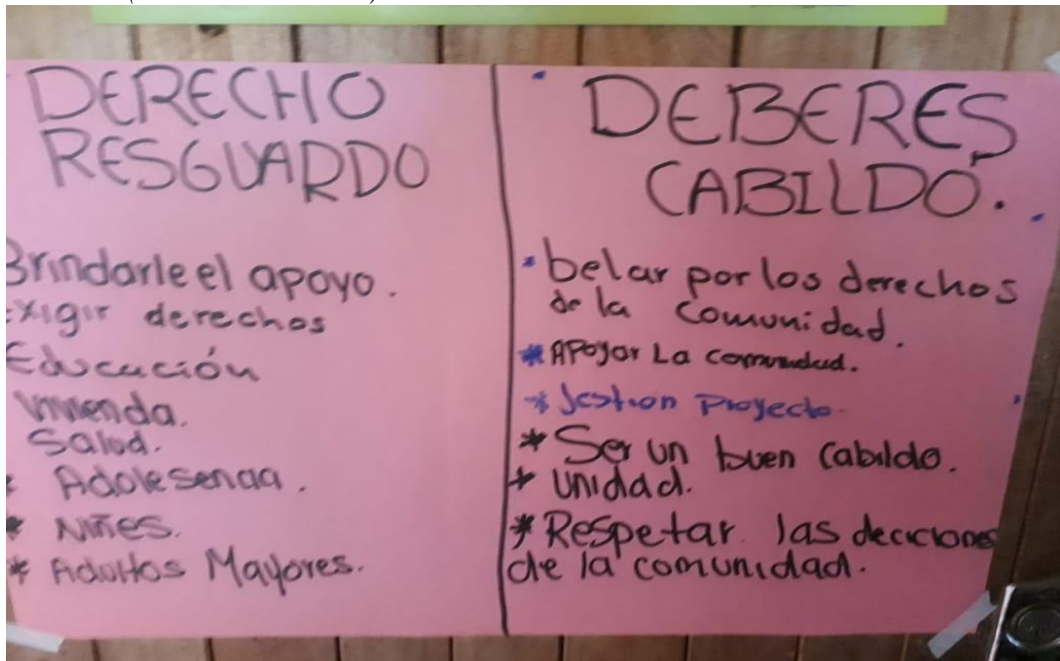 DERECHO
RESGUARDO
Brindarle el apoyo.
Exigir derechos
Educación
Vivienda.
Salud.
* Adolesencia.
* Niñes.
* Adultos Mayores.
DEBERES
CABILDO.
· belar por los derechos
de la comunidad.
* APoyar La comunidad.
* Jestion Proyecto.
* Ser un buen Cabildo.
* Unidad.
* Respetar las deciciones
de la comunidad.